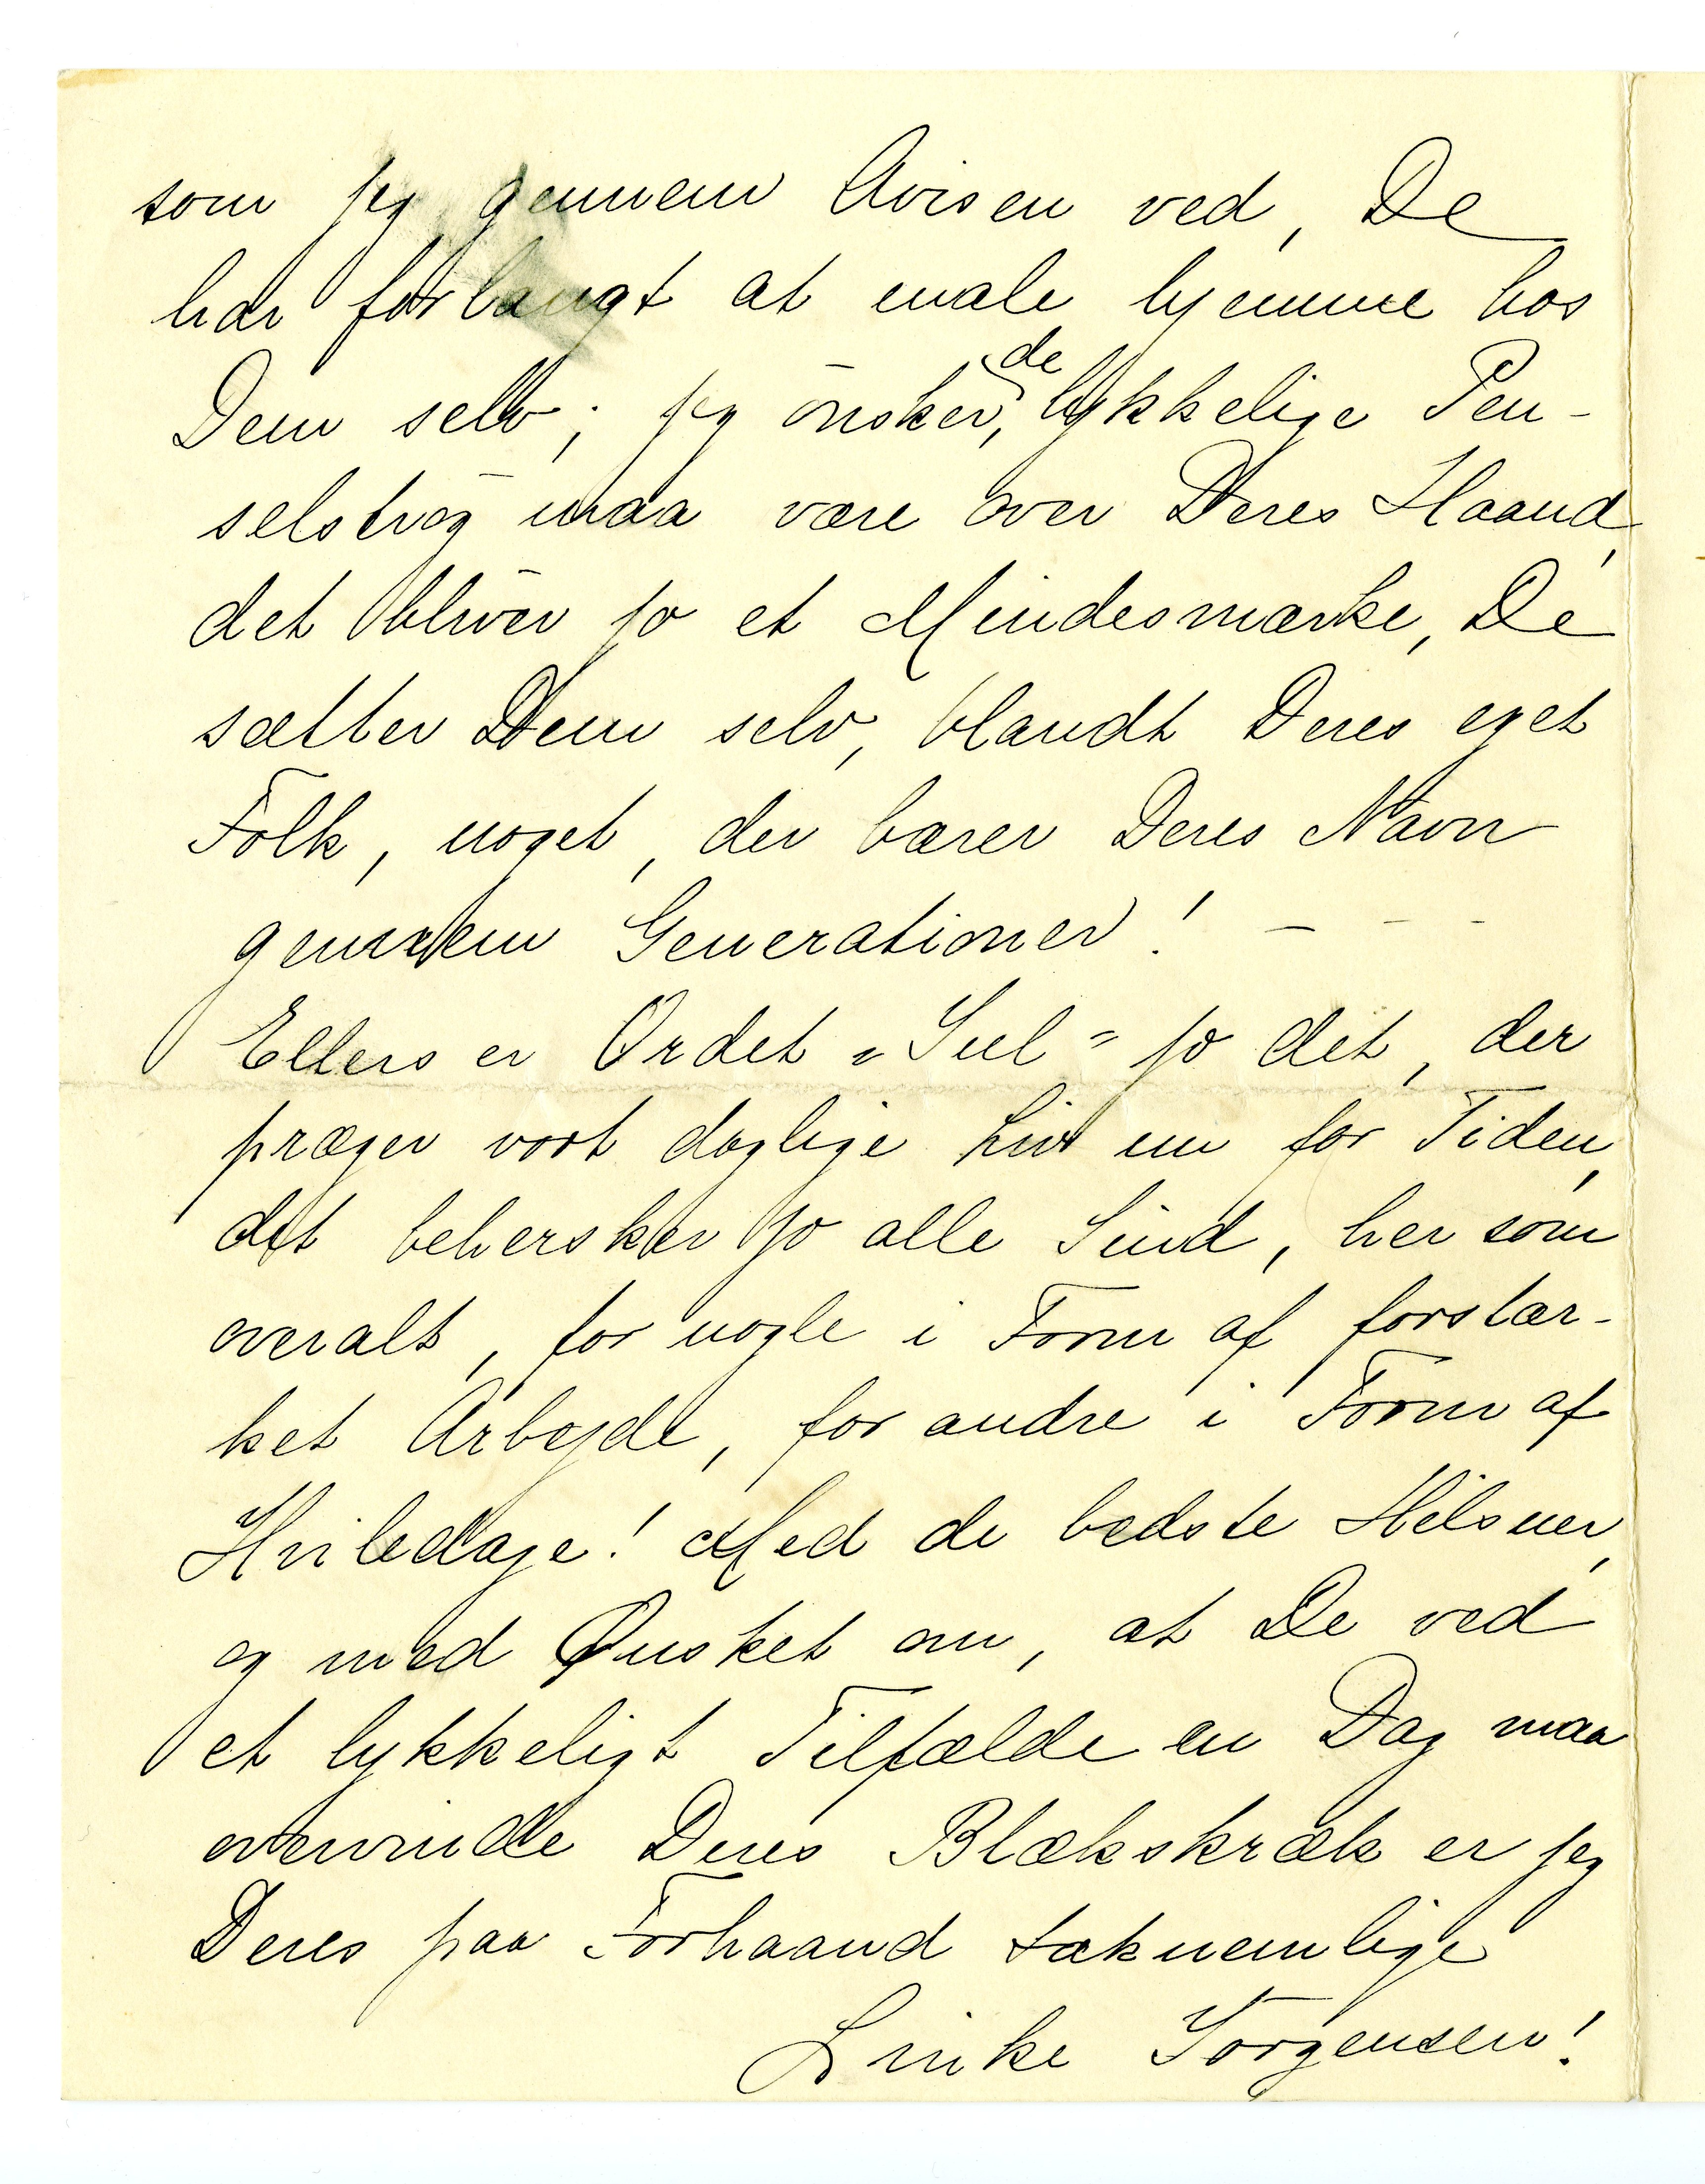 som jeg gennem Avisen ved, De
har forlangt at male hjemme hos
Dem selv; jeg ønsker, de lykkelige Pen-
selstrøg maa være over Deres Haand,
det bliver jo et Mindesmærke, De
sætter Dem selv, blandt Deres eget
Folk, noget, der bærer Deres Navn
gennem Generationer! - - -
Ellers er Ordet „Jul“ jo det, der
præger vort daglige Liv nu for Tiden,
det behersker jo alle Sind, her som
overalt, for nogle i Form af forstær-
ket Arbejde, for andre i Form af
Hviledage! Med de bedste Hilsner,
og med Ønsket om, at De ved
et lykkeligt Tilfælde en Dag maa
overvinde Deres Blækskræk er jeg
Deres paa Forhaand taknemlige
Linke Jørgensen!